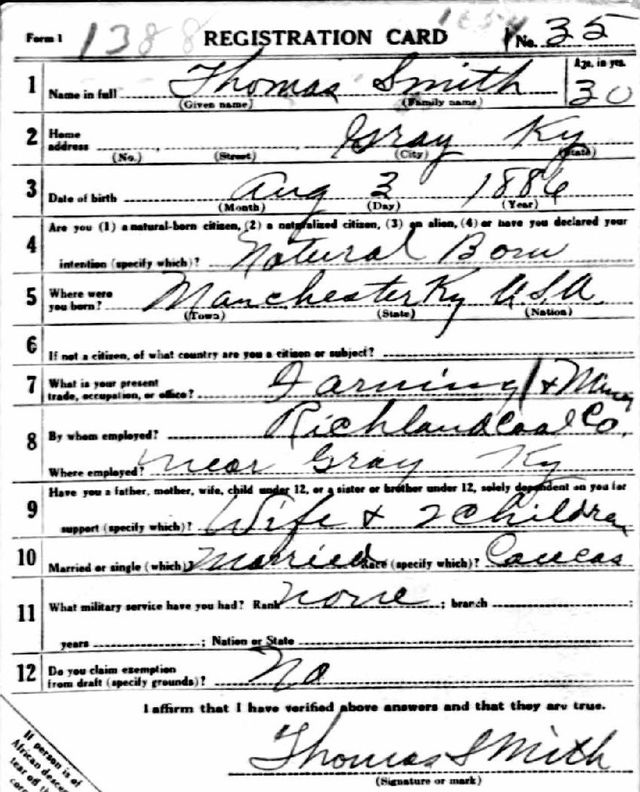 Form 1 1388 REGISTRATION CARD No. 35
1 Name in full Thomas Smith Age, in yrs. 30
(Given name) (Family name)
2 Home address Gray Ky
(No.) (Street) (City) (State)
3 Date of birth Aug 3 1886
(Month) (Day) (Year)
4 Are you (1) a natural-born citizen, (2) a naturalized citizen, (3) an alien, (4) or have you declared your
intention (specify which)? Natural Born
5 Where were you born? Manchester Ky U.S.A.
(Town) (State) (Nation)
6 If not a citizen, of what country are you a citizen or subject?
7 What is your present trade, occupation, or office? Farming &
8 By whom employed? Richland Coal Co.
Where employed? near Gray Ky
9 Have you a father, mother, wife, child under 12, or a sister or brother under 12, solely dependent on you for
support (specify which)? Wife & 2 children
10 Married or single (which)? Married Race (specify which)? Caucas
11 What military service have you had? Rank none ; branch ;
years ; Nation or State
12 Do you claim exemption from draft (specify grounds)? No
I affirm that I have verified above answers and that they are true.
Thomas Smith
(Signature or mark)
If person is of
African desce
tear off th
corn